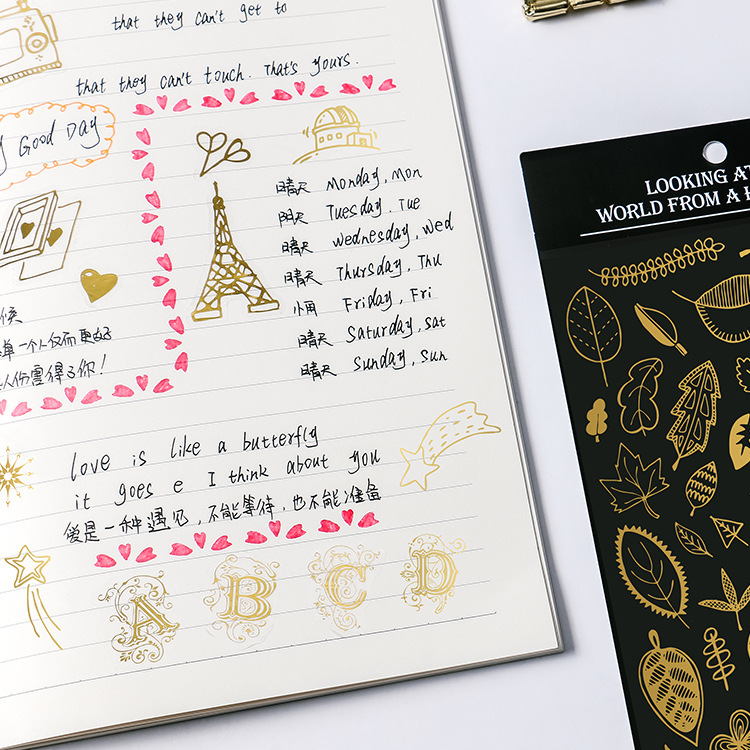 that they can't get to
that they can't touch. That's yours.
Good Day
晴天 Monday, Mon
阴天 Tuesday, Tue
晴天 Wednesday, Wed
晴天 Thursday, Thu
小雨 Friday, Fri
晴天 Saturday, Sat
晴天 Sunday, Sun
候
一个人仅而更好
你!
love is like a butterfly
it goes e I think about you
爱是一种遇见,不能等待,也不能准备
A B C D
LOOKING AT
WORLD FROM A